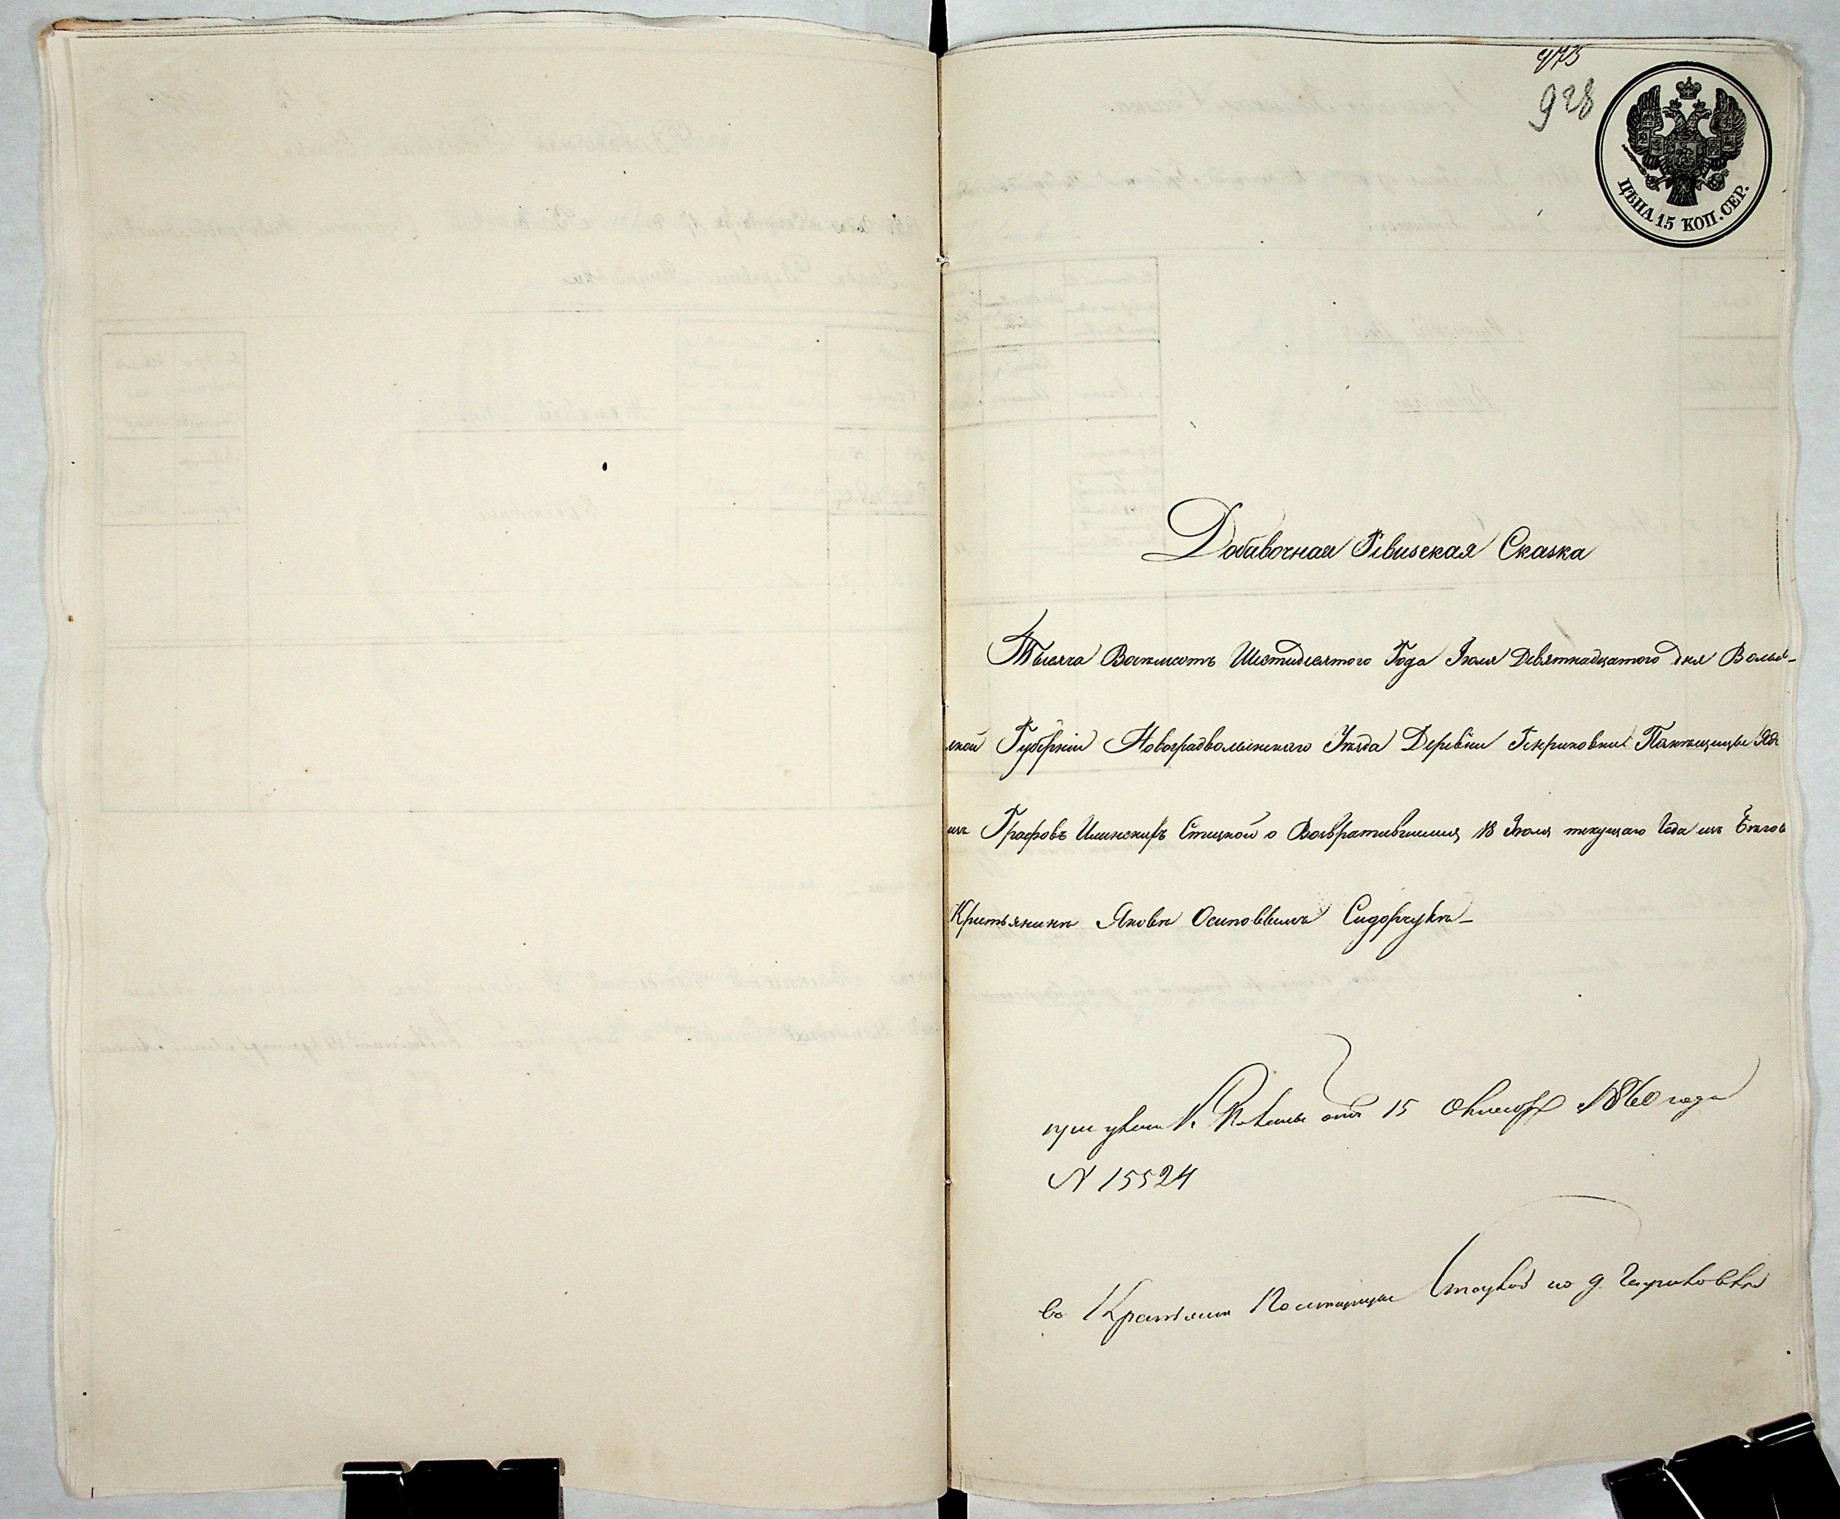 973
928
ЦѢНА 15 КОП. СЕР.
Добавочная Ревизская Сказка
Тысяча Восемсотъ Шестидесятого Года Іюля Девятнадцатого дня Волын-
ской Губерніи Новоградволынскаго Уѣзда Деревни Генриховки Помѣщицы
изъ Графовъ Илинскихъ Стецкой о Возвратившимся 18 Іюля текущаго Года изъ Бѣгов
Крѣстьянинѣ Яковѣ Осиповѣ Сидорчукѣ
при указѣ К. Палаты отъ 15 Октября 1860 года
№ 15524
во Крестьяне Помѣщицы Стецкой по д. Генриховкѣ